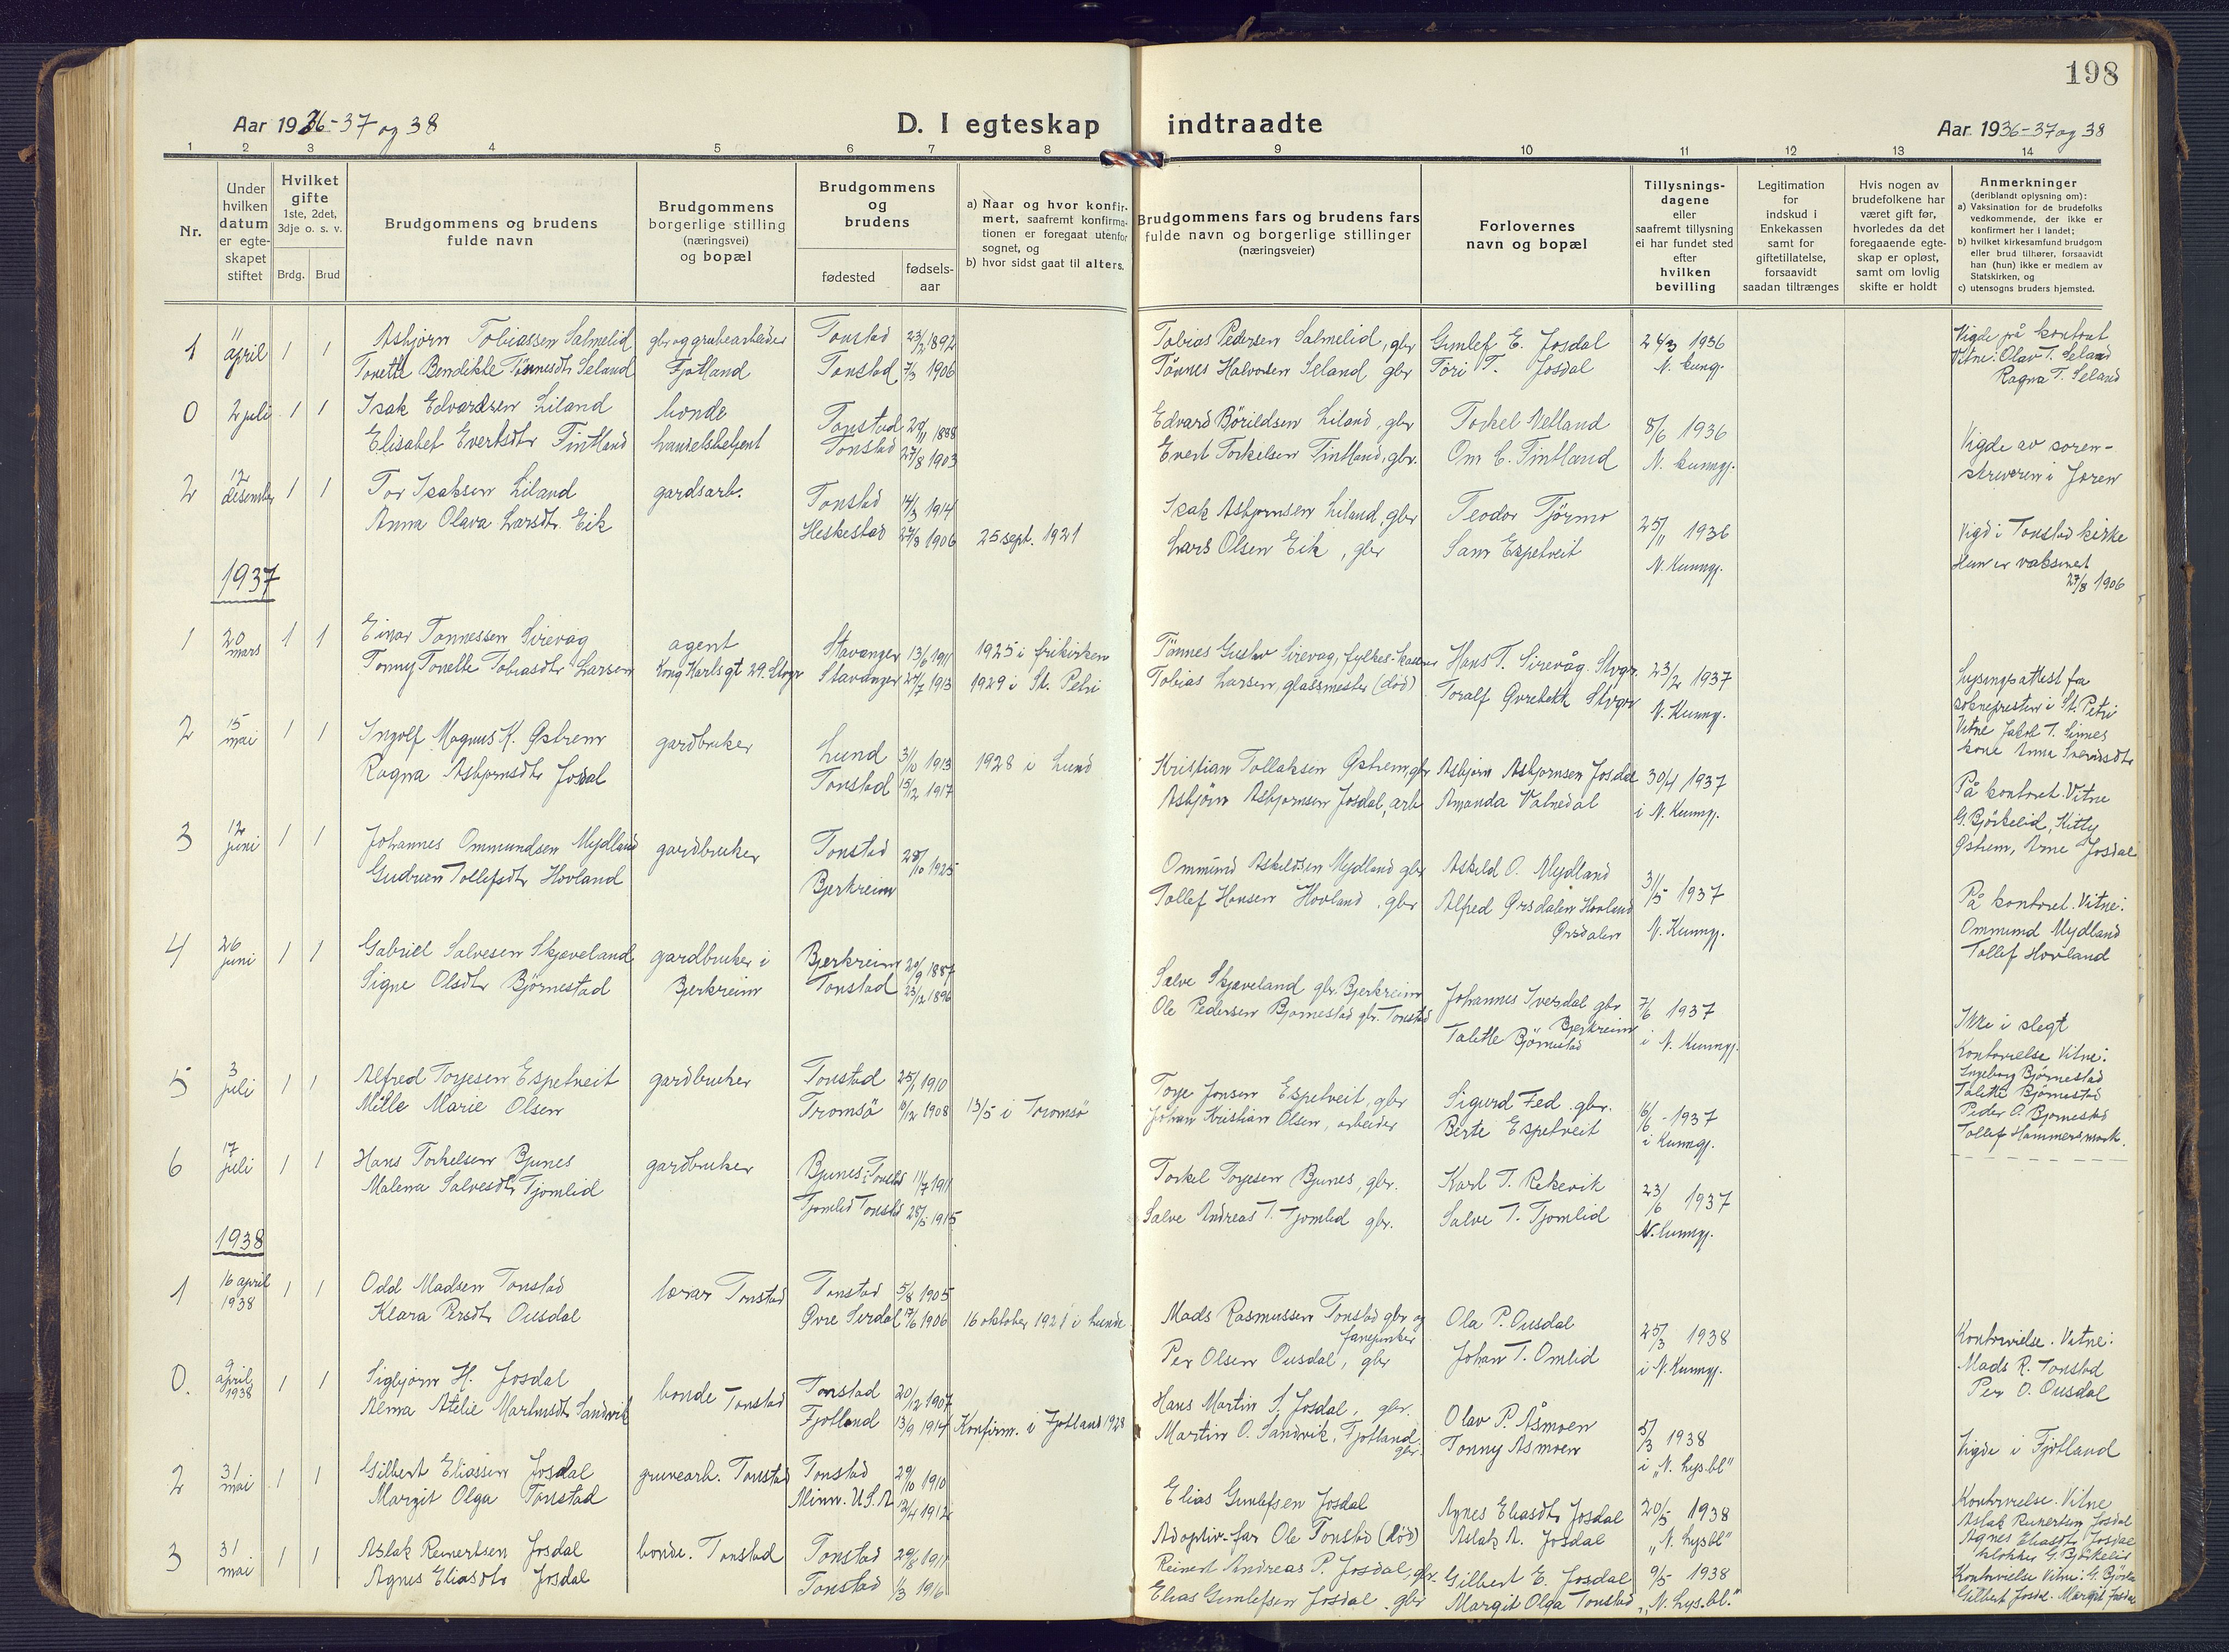 198
Aar 1936-37 og 38
D. I egteskap indtraadte
Aar 1936-37 og 38
1 2 3 4 5 6 7 8 9 10 11 12 13 14
Nr.
Under hvilken datum er egte-skapet stiftet
Hvilket gifte
1ste, 2det, 3dje o. s. v.
Brdg. Brud
Brudgommens og brudens fulde navn
Brudgommens borgerlige stilling (næringsvei) og bopæl
Brudgommens og brudens
fødested
fødsels-aar
a) Naar og hvor konfir-mert, saafremt konfirma-tionen er foregaat utenfor sognet, og
b) hvor sidst gaat til alters.
Brudgommens fars og brudens fars fulde navn og borgerlige stillinger (næringsveier)
Forlovernes navn og bopæl
Tillysnings-dagene eller saafremt tillysning ei har fundet sted efter hvilken bevilling
Legitimation for indskud i Enkekassen samt for giftetillatelse, forsaavidt saadan tiltrænges
Hvis nogen av brudefolkene har været gift før, hvorledes da det foregaaende egte-skap er opløst, samt om lovlig skifte er holdt
Anmerkninger
(deriblandt oplysning om):
a) Vaksination for de brudefolks vedkommende, der ikke er konfirmert her i landet;
b) hvilket kirkesamfund brudgom eller brud tilhører, forsaavidt han (hun) ikke er medlem av Statskirken, og
c) utensogns bruders hjemsted.
1 11 april 1 1 Asbjørn Tobiassen Salmelid gbr og grubearbeider Tonstad 23/2 1892 Tobias Pedersen Salmelid, gbr Gunlef E. Josdal 24/3 1936 Vigde på kontoret
Tonette Bendikte Tönnesdtr Seland Fjotland Tonstad 7/3 1906 Tönnes Halvorsen Seland, gbr Töri T. Josdal N. kung. Vitne: Olav T. Seland
Ragna T. Seland
0 2 juli 1 1 Isak Edvardsen Liland bonde Tonstad 1888 Edvard Börildsen Liland, gbr Torkel Velland 8/6 1936 Vigde av soren-
Elisabet Evertsdtr Tintland handelsbetjent Tonstad 27/8 1903 Evert Torkelsen Tintland, gbr. Om E. Tintland N. kunngj. skriveren i Jæren
2 12 desember 1 1 Tor Isaksen Liland gardsarb. Tonstad 14/3 1914 Isak Asbjørnsen Liland, gbr Teodor Tjörmo 25/11 1936 Vigd i Tonstad kirke
Anna Olava Larsdtr. Eik Heskestad 27/8 1906 25 sept. 1921 Lars Olsen Eik, gbr Sam Espetveit N. Kunngj. Hun er vaksinert
27/8 1906
1937
1 20 mars 1 1 Einar Tønnessen Sirevåg agent Stavanger 13/6 1911 1925 i frikirken Tönnes Gustav Sirevåg, fylkes-kasserer Hans T. Sirevåg. Stvgr. 23/2 1937 Lysingsattest fra
Tonny Tonette Tobiasdtr Larsen Kong Karlsgt 29. Stvgr Stavanger 1913 1929 i St. Petri Tobias Larsen, glassmester (död) Toralf Øvrebekk Stvgr N. Kunng. sokneprestin i St. Petri
Vitne Jakob T. Sinnes
kone Anna
2 15 mai 1 1 Ingolf Magnus K. Østrem gardbruker Lund 3/10 1913 1928 i Lund Kristian Tollaksen Østrem, gbr Asbjørn Asbjørnsen Josdal 30/4 1937 På kontoret. Vitne
Ragna Asbjørnsdtr Josdal Tonstad 15/12 1917 Asbjörn Asbjørnsen Josdal, arb Amanda Vatnedal i N. Kunngj. G. Björkelid, Kitty
Østrem, Arne Josdal
3 12 juni 1 1 Johannes Ommundsen Mydland gardbruker Tonstad 28/10 1925 Ommund Askeldsen Mydland gbr Askeld O. Mydland 31/5 1937 På kontoret. Vitne:
Gudrun Tollefsdtr Hovland Bjerkreim Tollef Hansen Hovland, gbr Alfred Ørsdalen Hovland Ørsdalen N. Kunngj. Ommund Mydland
Tollef Hovland
4 26 juni 1 1 Gabriel Salvesen Skjæveland gardbruker i Bjerkreim 20/9 1887 Salve Skjæveland gbr. Bjerkreim Johannes Iversdal gbr Bjerkreim 7/6 1937 Ikke i slegt
Signe Olsdtr Björnestad Bjerkreim Tonstad 23/12 1896 Ole Pedersen Bjørnestad gbr. Tonstad Talette Björnestad i N. Kunngj. Kontorvielse Vitne:
Ingeborg Bjørnestad
Talette Bjørnestad
Peder O. Bjørnestad
Tollef Hammersmark.
5 3 juli 1 1 Alfred Torjesen Espetveit gardbruker Tonstad 25/1 1910 Torje Jonsen Espetveit, gbr Sigurd Fed. gbr. 16/6 - 1937
Mille Marie Olsen Tromsö 1908 13/5 i Tromsö Johan Kristian Olsen, arbeider Berte Espetveit i Kunngj.
6 17 juli 1 1 Hans Torkelsen Bjunes gardbruker Bjunes i Tonstad 11/7 1911 Torkel Torjesen Bjunes, gbr. Karl T. Rekevik 23/6 1937
Malena Salvesdtr Tjomlid Tjomlid Tonstad 28/5 1915 Salve Andreas T. Tjomlid gbr. Salve T. Tjomlid N. kunngj.
1938
1 16 april 1938 1 1 Odd Madsen Tonstad lærar Tonstad Tonstad 5/8 1905 Mads Rasmussen Tonstad gbr og fanejunker Ola P. Ousdal 25/3 1938 Kontorvielse. Vitne:
Klara Persdtr Ousdal Øvre Sirdal 17/6 1906 16 oktober 1921 i Lunde Per Olsen Ousdal, gbr Johan T. Omlid i N. Kunngj. Mads R. Tonstad
Per O. Ousdal
0. 9 april 1938 1 1 Sigbjørn H. Josdal bonde Tonstad Tonstad 20/12 1907 Hans Martin S. Josdal, gbr. Olav P. Åsmoen 5/3 1938 Vigde i Fjotland
Alma Atelie Martinsdtr Sandvik Fjotland 13/9 1914 Konfirm. i Fjotland 1928 Martin O. Sandvik, Fjotland gbr. Tonny Åsmoen i "N. Lysbl"
2 31 mai 1 1 Gilbert Eliassen Josdal gruvearb. Tonstad Tonstad 29/10 1910 Elias Gunlefsen Josdal Agnes Eliasdtr Josdal 20/5 1938 Kontorvielse. Vitne
Margit Olga Tonstad Minn. U.S.A 12/4 1912 Adoptiv-far Ole Tonstad (död) Aslak R. Josdal "N. Lysbl" Aslak Reinertsen Josdal
Agnes Eliasdtr Josdal
klokker G. Björkelid
3 31 mai 1 1 Aslak Reinertsen Josdal bonde. Tonstad Tonstad 1911 Reinert Andreas P. Josdal, gbr. Gilbert E. Josdal 9/5 1938 Kontorvielse Vitne: G. Björke
Agnes Eliasdtr Josdal Tonstad 1/3 1916 Elias Gunlefsen Josdal, gbr Margit Olga Tonstad "N. Lys.bl." Gilbert Josdal. Margit Josdal